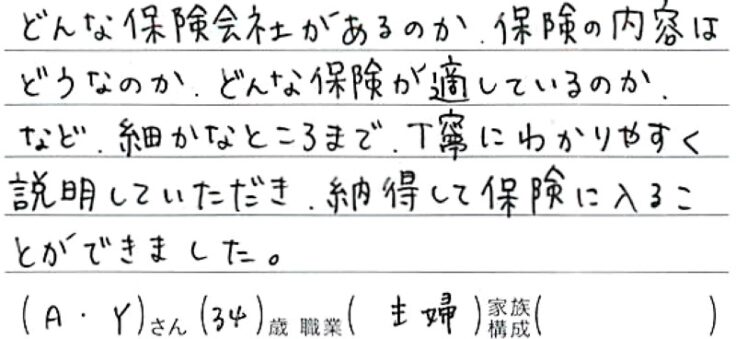 どんな保険会社があるのか、保険の内容は
どうなのか、どんな保険が適しているのか、
など、細かなところまで、丁寧にわかりやすく
説明していただき、納得して保険に入るこ
とができました。
(A・Y)さん (34)歳 職業( 主婦 )家族構成( )